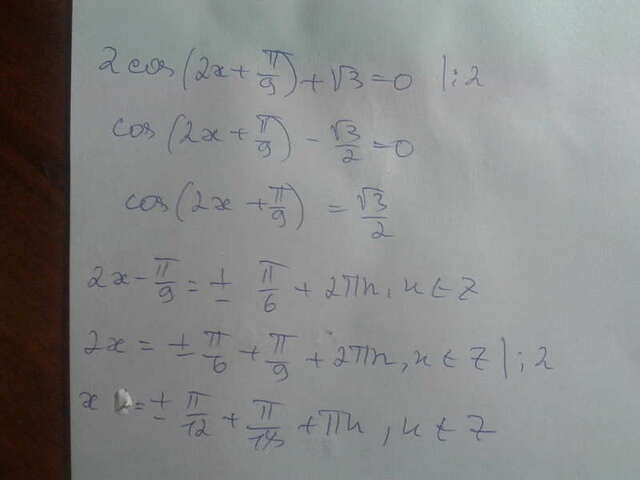 2cos(2x + π/9) + √3 = 0 |:2
cos(2x + π/9) - √3/2 = 0
cos(2x + π/9) = √3/2
2x - π/9 = ± π/6 + 2πn, n ∈ Z
2x = ± π/6 + π/9 + 2πn, n ∈ Z |:2
x = ± π/12 + π/ + πn, n ∈ Z